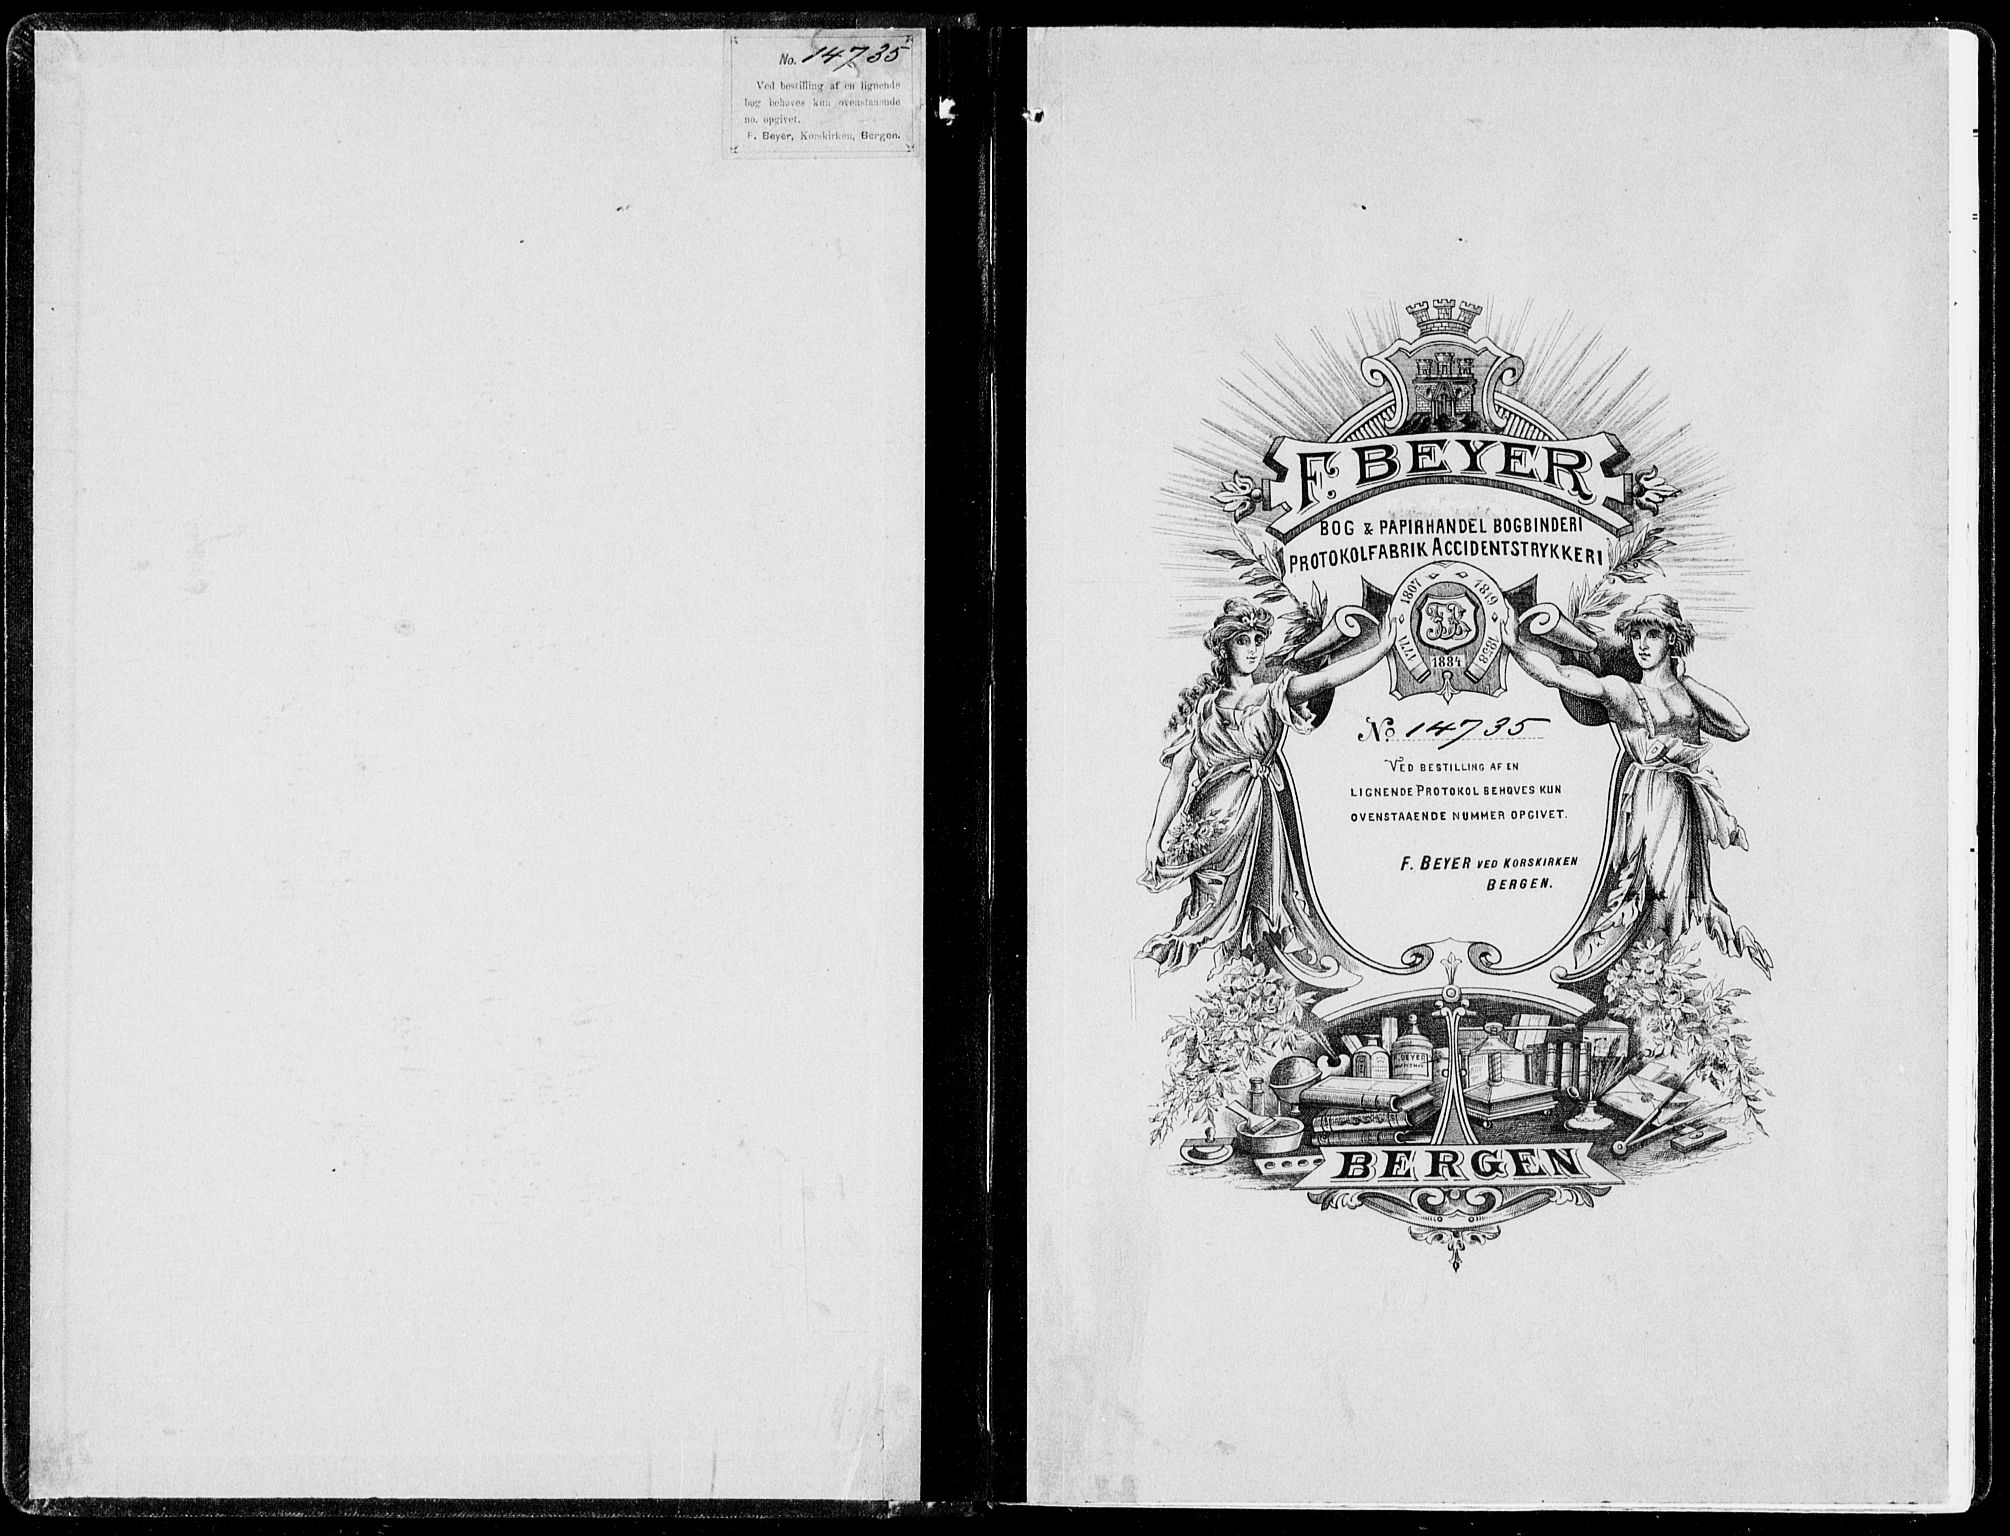 No. 14735
Ved bestilling af en lignende
bog behøves kun ovenstaaende
no. opgivet.
F. Beyer, Korskirken, Bergen.
F. BEYER
BOG & PAPIRHANDEL BOGBINDERI
PROTOKOLFABRIK ACCIDENTSTRYKKERI
1771 1807 1819 1858
1884
No. 14735
VED BESTILLING AF EN
LIGNENDE PROTOKOL BEHØVES KUN
OVENSTAAENDE NUMMER OPGIVET.
F. BEYER VED KORSKIRKEN
BERGEN.
BEYER
BERGEN